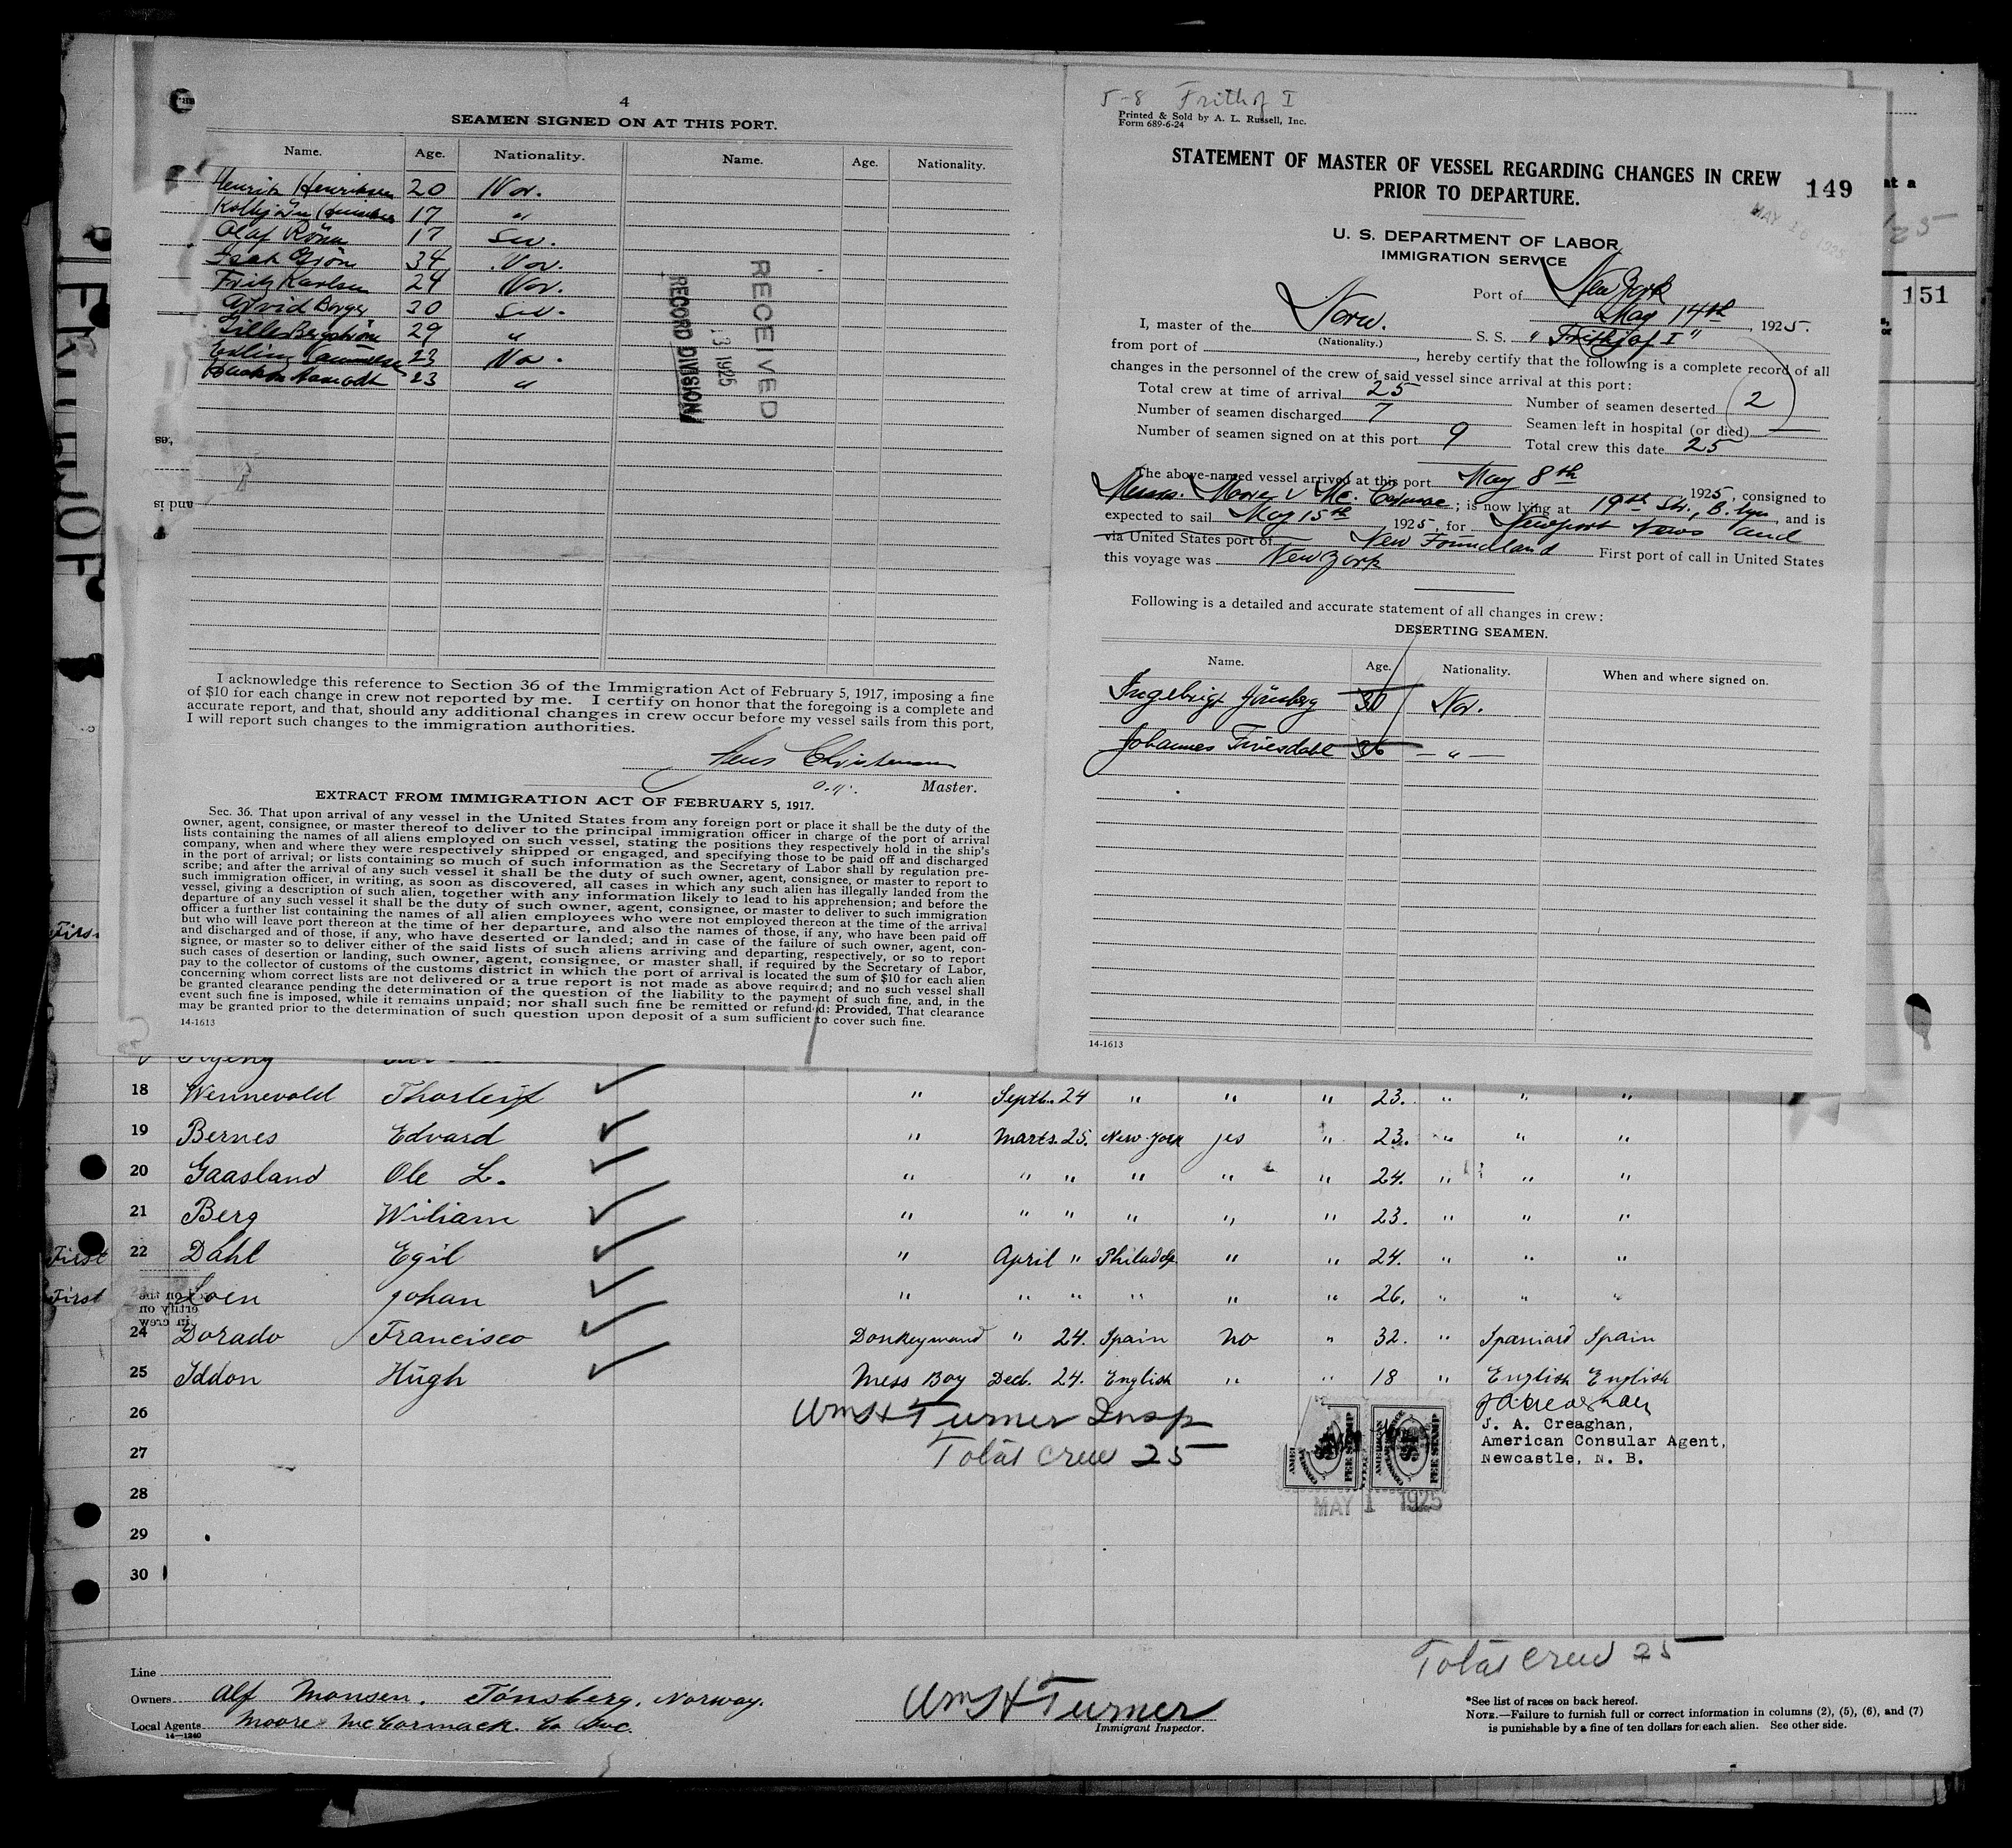 4
SEAMEN SIGNED ON AT THIS PORT.
Name. Age. Nationality. Name. Age. Nationality.
Henrik Henriksen 20 Nor.
Henriksen 17 "
Olaf 17 Sw.
34 Nor.
Fritz Karlsen 24 Nor.
Arvid Borge 30 Sw.
29 "
Erling 23 No.
23 "
RECEIVED
13 1925
RECORD DIVISION
I acknowledge this reference to Section 36 of the Immigration Act of February 5, 1917, imposing a fine
of $10 for each change in crew not reported by me. I certify on honor that the foregoing is a complete and
accurate report, and that, should any additional changes in crew occur before my vessel sails from this port,
I will report such changes to the immigration authorities.
Christensen
Master.
EXTRACT FROM IMMIGRATION ACT OF FEBRUARY 5, 1917.
Sec. 36. That upon arrival of any vessel in the United States from any foreign port or place it shall be the duty of the
owner, agent, consignee, or master thereof to deliver to the principal immigration officer in charge of the port of arrival
lists containing the names of all aliens employed on such vessel, stating the positions they respectively hold in the ship's
company, when and where they were respectively shipped or engaged, and specifying those to be paid off and discharged
in the port of arrival; or lists containing so much of such information as the Secretary of Labor shall by regulation pre-
scribe; and after the arrival of any such vessel it shall be the duty of such owner, agent, consignee, or master to report to
such immigration officer, in writing, as soon as discovered, all cases in which any such alien has illegally landed from the
vessel, giving a description of such alien, together with any information likely to lead to his apprehension; and before the
departure of any such vessel it shall be the duty of such owner, agent, consignee, or master to deliver to such immigration
officer a further list containing the names of all alien employees who were not employed thereon at the time of the arrival
but who will leave port thereon at the time of her departure, and also the names of those, if any, who have been paid off
and discharged and of those, if any, who have deserted or landed; and in case of the failure of such owner, agent, con-
signee, or master so to deliver either of the said lists of such aliens arriving and departing, respectively, or so to report
such cases of desertion or landing, such owner, agent, consignee, or master shall, if required by the Secretary of Labor,
pay to the collector of customs of the customs district in which the port of arrival is located the sum of $10 for each alien
concerning whom correct lists are not delivered or a true report is not made as above required; and no such vessel shall
be granted clearance pending the determination of the question of the liability to the payment of such fine, and, in the
event such fine is imposed, while it remains unpaid; nor shall such fine be remitted or refunded: Provided, That clearance
may be granted prior to the determination of such question upon deposit of a sum sufficient to cover such fine.
14-1613
5-8 Frithjof I
Printed & Sold by A. L. Russell, Inc.
Form 689-6-24
STATEMENT OF MASTER OF VESSEL REGARDING CHANGES IN CREW
PRIOR TO DEPARTURE.
149
MAY 16 1925
U. S. DEPARTMENT OF LABOR
IMMIGRATION SERVICE
Port of New York
May 14th, 1925.
I, master of the Norw. S. S. "Frithjof I"
(Nationality.)
from port of , hereby certify that the following is a complete record of all
changes in the personnel of the crew of said vessel since arrival at this port:
Total crew at time of arrival 25 Number of seamen deserted 2
Number of seamen discharged 7 Seamen left in hospital (or died) —
Number of seamen signed on at this port 9 Total crew this date 25
The above-named vessel arrived at this port May 8th 1925, consigned to
Messrs. Moore & Mc. Cormac; is now lying at 19th Str., B.lyn, and is
expected to sail May 15th 1925, for Newport News and
via United States port of New Foundland First port of call in United States
this voyage was New York
Following is a detailed and accurate statement of all changes in crew:
DESERTING SEAMEN.
Name. Age. Nationality. When and where signed on.
Ingebrigt 30 Nor.
Johannes 36 — " —
14-1613
151
18 Wennevold Thorleif " Septb. 24 " " " 23. " " "
19 Bernes Edvard " Marts. 25. New York yes " 23. " " "
20 Gaasland Ole L. " " " " " " 24. " " "
21 Berg Wiliam " " " " " " 23. " " "
First 22 Dahl Egil " April " Philadelp. " " 24. " " "
First Loen Johan " " " " " " 26. " " "
24 Dorado Francisco Donkeymand " 24. Spain no " 32. " Spaniard Spain
25 Iddon Hugh Mess Boy Decb. 24. English " " 18 " English English
26 Wm H Turner Insp
J. A. Creaghan,
American Consular Agent,
Newcastle, N. B.
27 Total Crew 25
FEE STAMP FEE STAMP
MAY 1 1925
28
29
30
Total Crew 25
Line
Owners Alf Monsen. Tönsberg, Norway.
Local Agents Moore McCormack. Co Inc.
14—1240
Wm H Turner
Immigrant Inspector.
*See list of races on back hereof.
NOTE.—Failure to furnish full or correct information in columns (2), (5), (6), and (7)
is punishable by a fine of ten dollars for each alien. See other side.